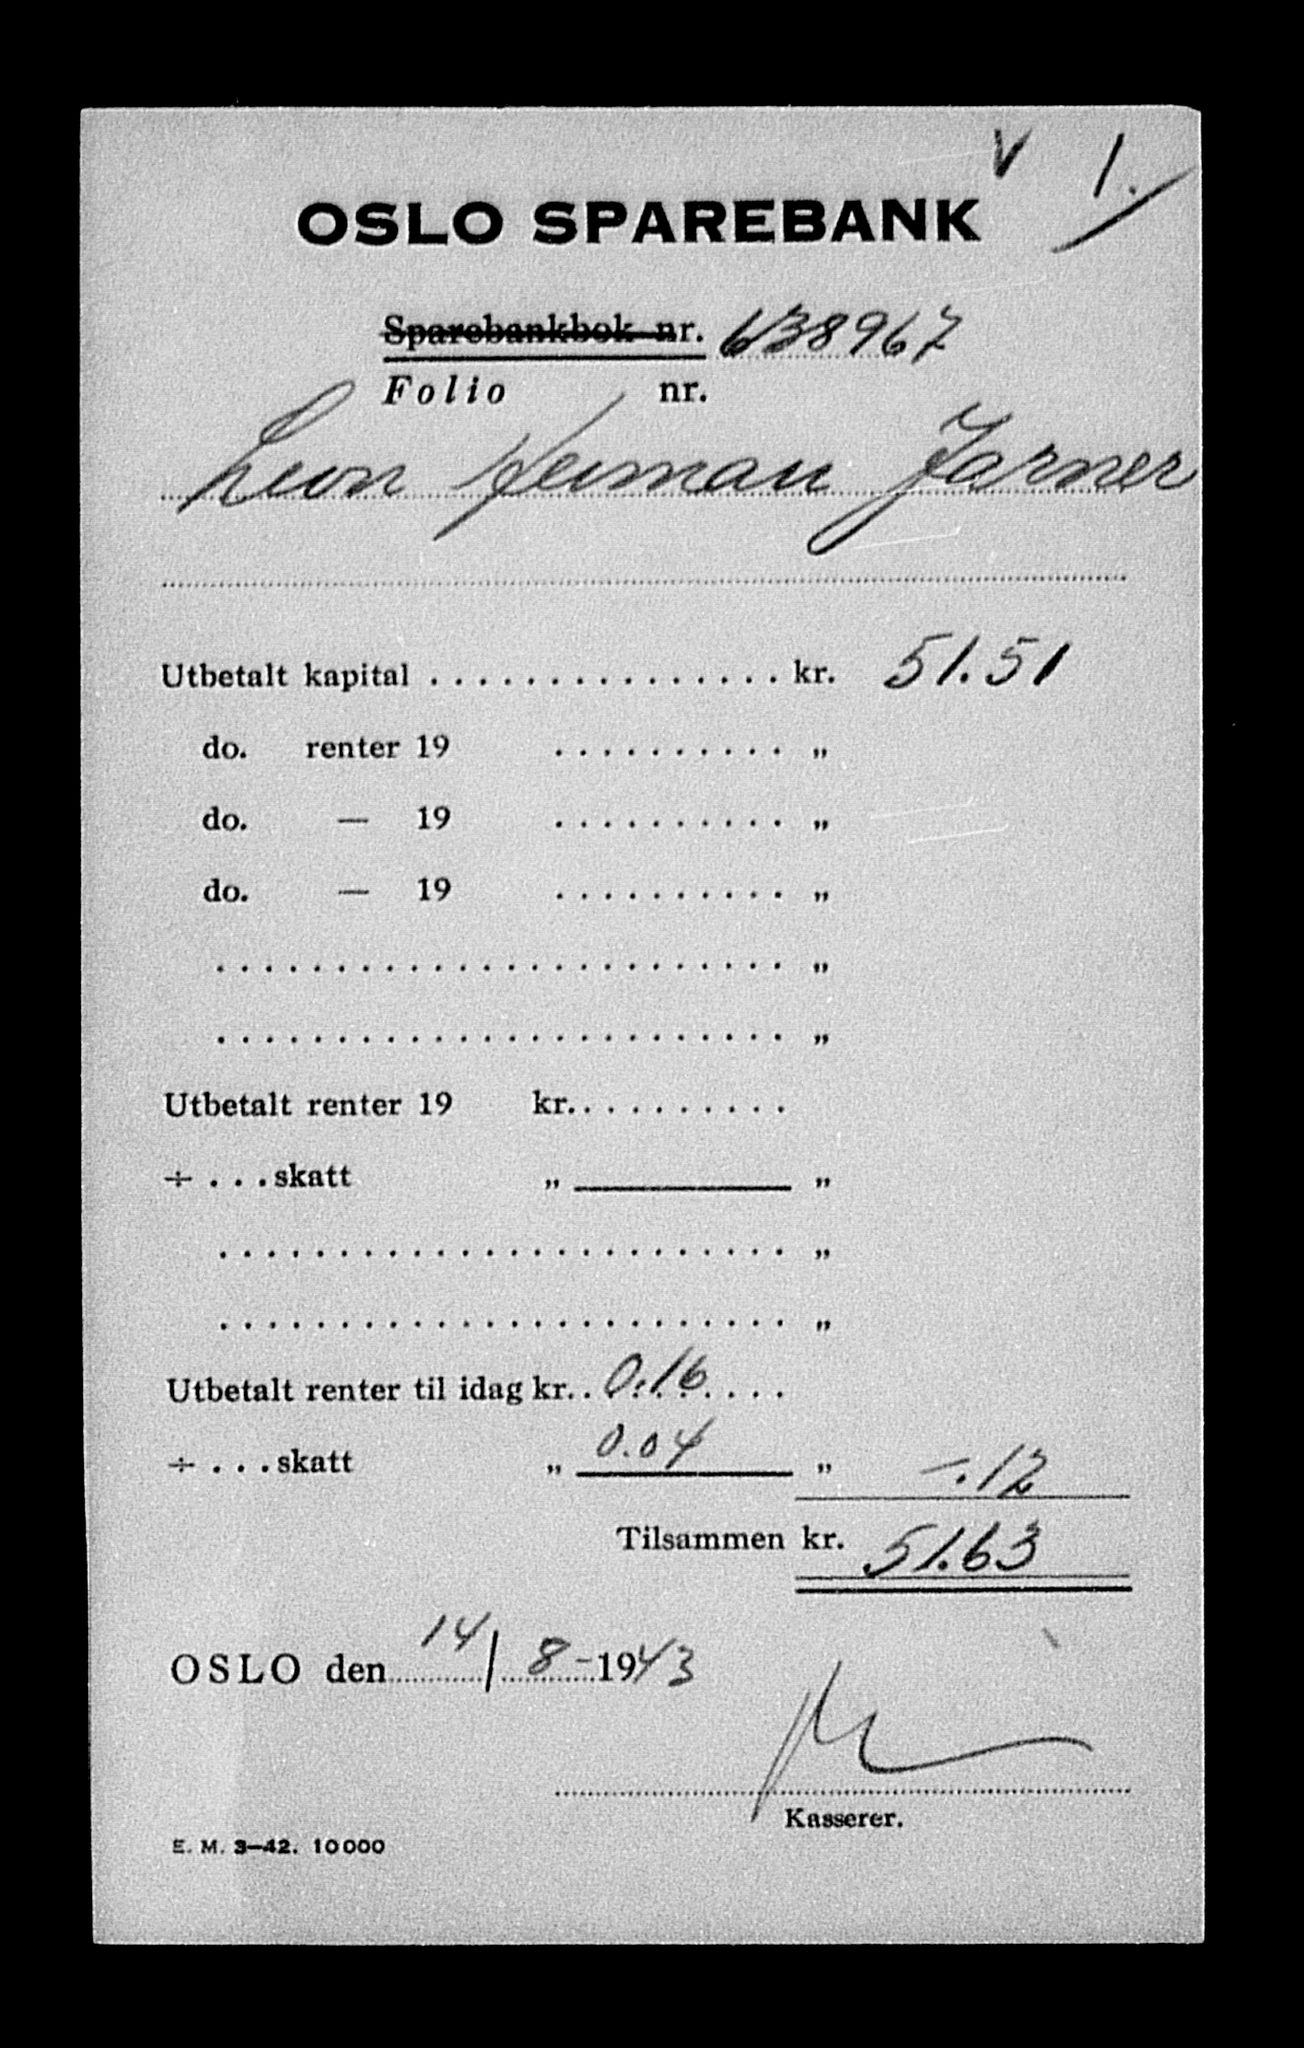 V 1.
OSLO SPAREBANK
Sparebankbok nr. 638967
Folio nr.
Leon Heiman Jarner
Utbetalt kapital . . . . . . . . . . . . . . . kr. 51.51
do. renter 19 . . . . . . . . . . „
do. — 19 . . . . . . . . . . „
do. — 19 . . . . . . . . . . „
. . . . . . . . . . . . . . . . . . . . . . . . „
. . . . . . . . . . . . . . . . . . . . . . . . „
Utbetalt renter 19 kr. . . . . . . . . .
÷ . . . skatt „ „
. . . . . . . . . . . . . . . . . . . . . . . . „
. . . . . . . . . . . . . . . . . . . . . . . . „
Utbetalt renter til idag kr. . 0.16 . . . .
÷ . . . skatt „ 0.04 „ —.12
Tilsammen kr. 51.63
OSLO den 14/8-1943
Kasserer.
E. M. 3—42. 10000